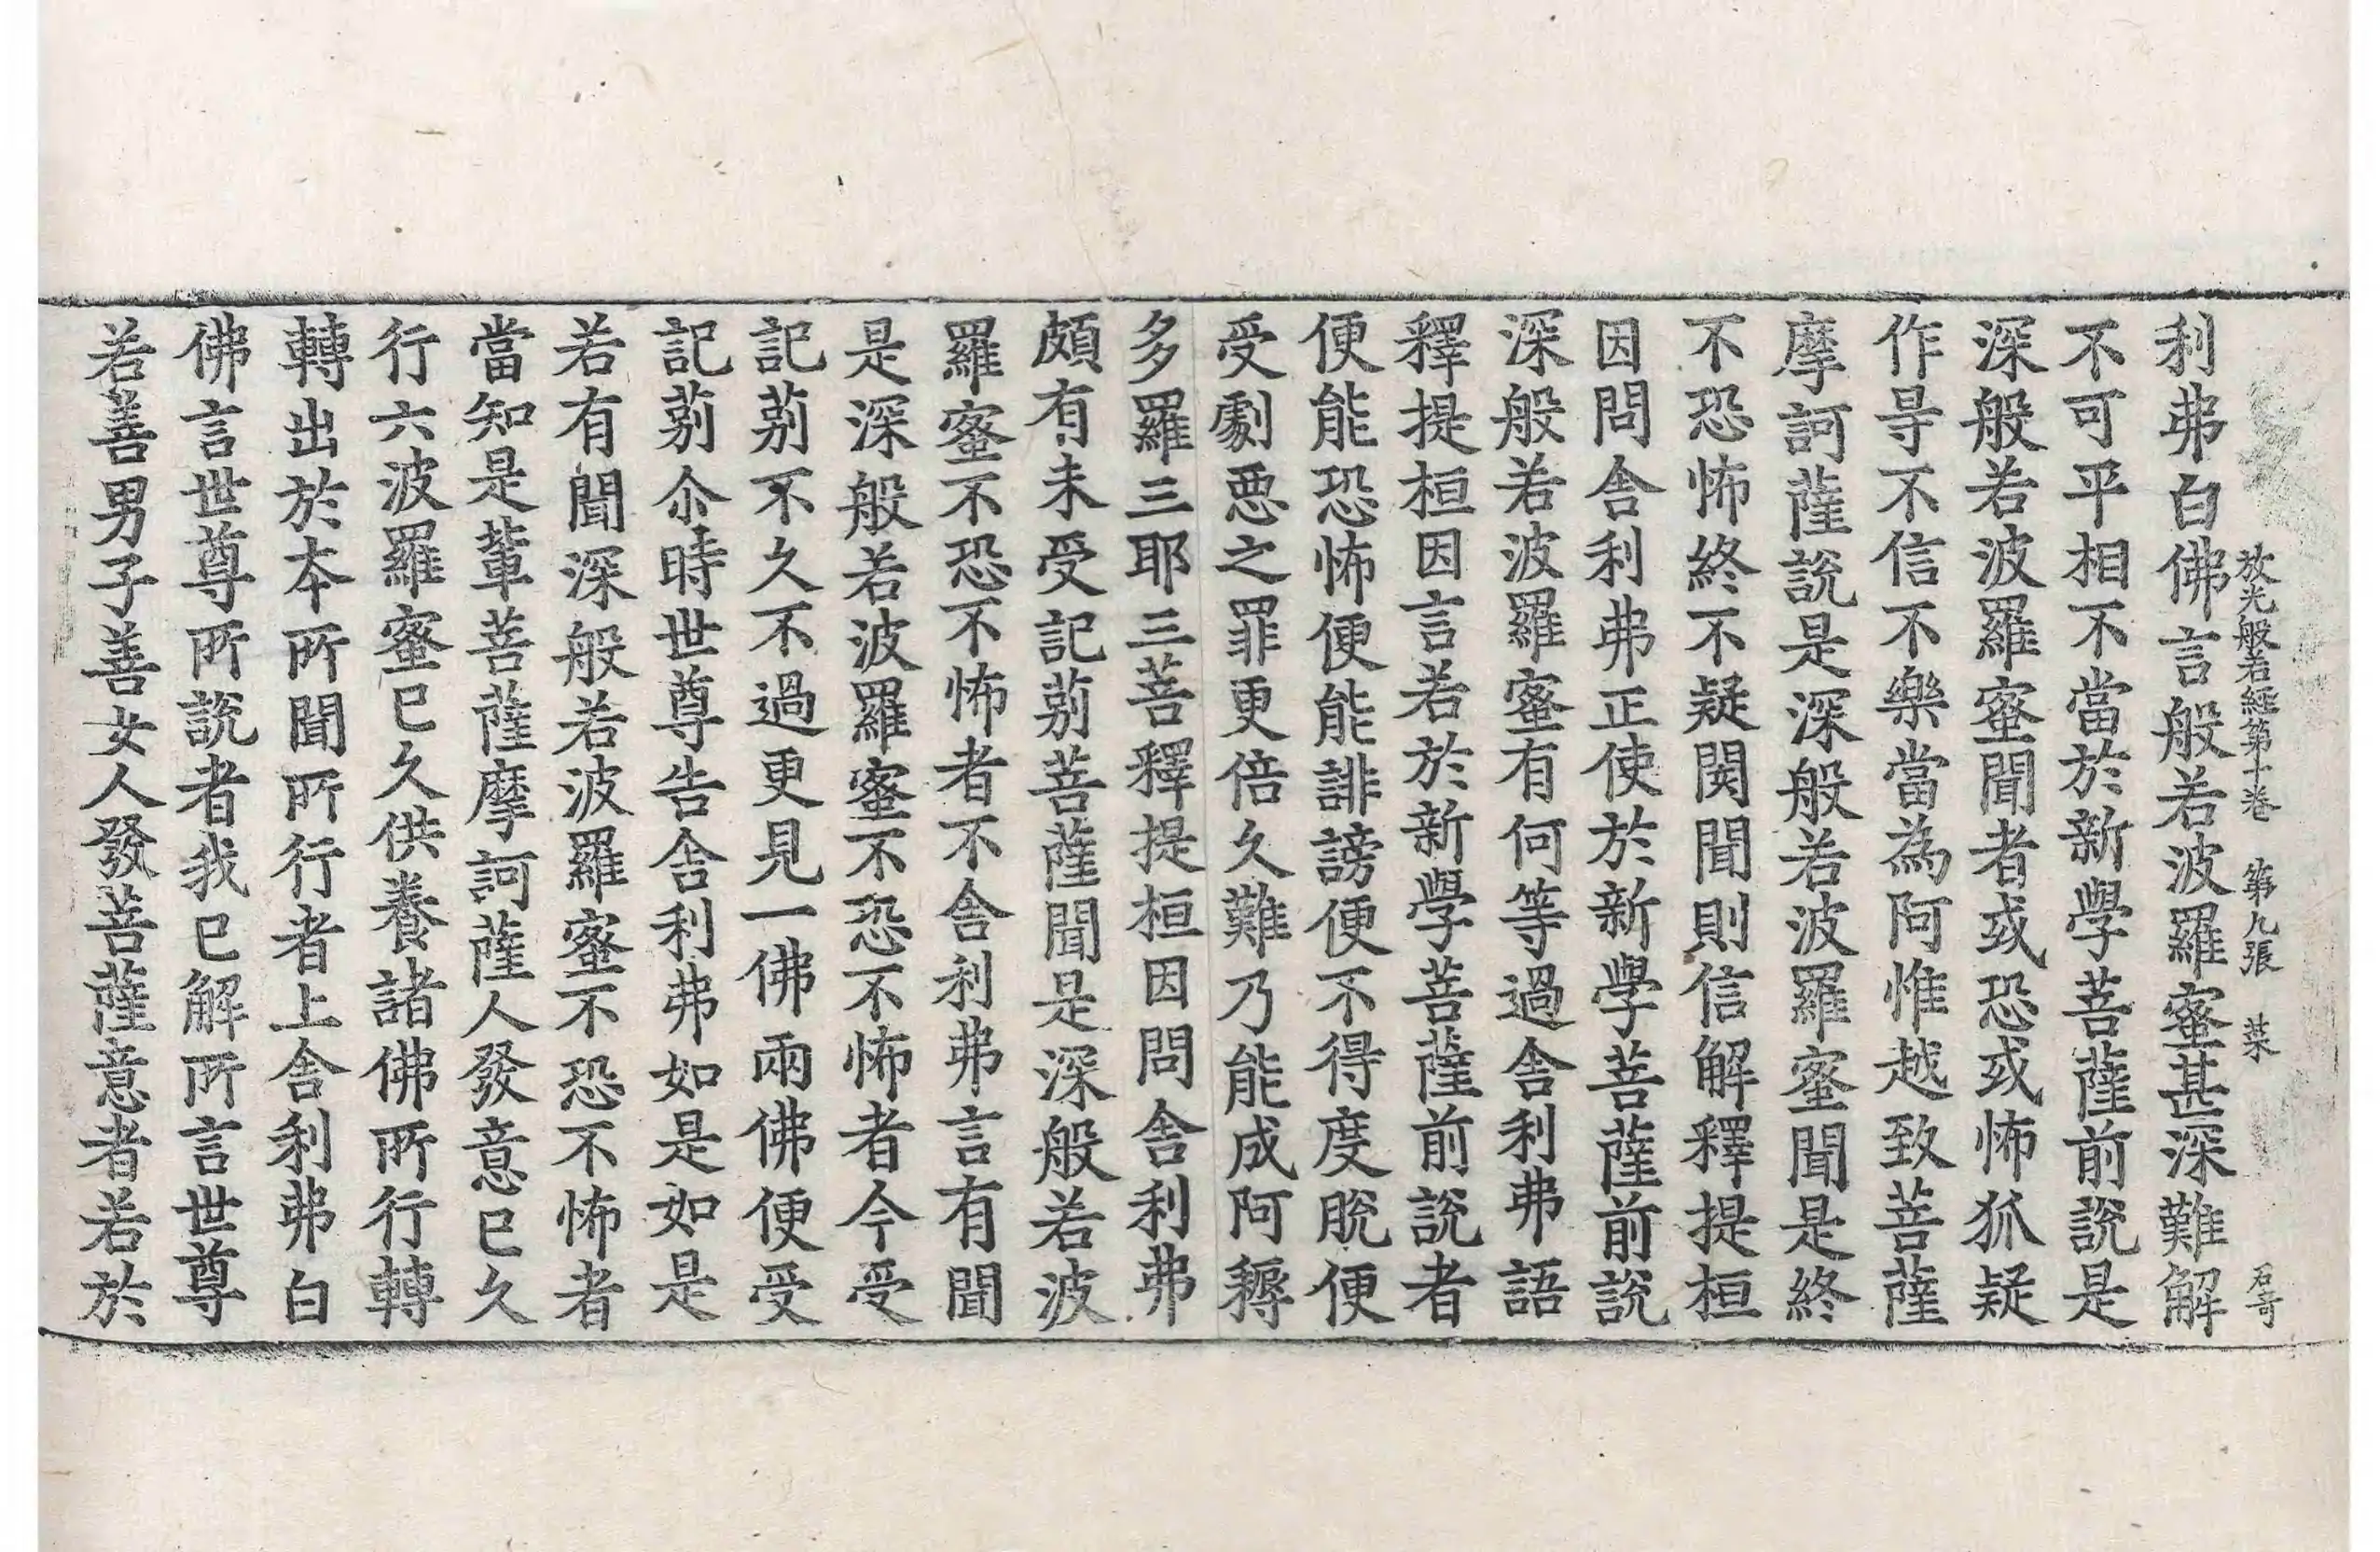 放光般若經第十卷　第九張　菜　石奇
利弗白佛言般若波羅蜜甚深難解
不可平相不當於新學菩薩前說是
深般若波羅蜜聞者或恐或怖狐疑
作㝵不信不樂當為阿惟越致菩薩
摩訶薩說是深般若波羅蜜聞是終
不恐怖終不疑閡聞則信解釋提桓
因問舎利弗正使於新學菩薩前說
深般若波羅蜜有何等過舎利弗語
釋提桓因言若於新學菩薩前說者
便能恐怖便能誹謗便不得度脫便
受劇悪之罪更倍久難乃能成阿耨
多羅三耶三菩釋提桓因問舎利弗
頗有未受記莂菩薩聞是深般若波
羅蜜不恐不怖者不舎利弗言有聞
是深般若波羅蜜不恐不怖者今受
記莂不久不過更見一佛兩佛便受
記莂尒時世尊告舎利弗如是如是
若有聞深般若波羅蜜不恐不怖者
當知是輩菩薩摩訶薩人發意已久
行六波羅蜜已久供養諸佛所行轉
轉出於本所聞所行者上舎利弗白
佛言世尊所說者我已解所言世尊
若善男子善女人發菩薩意者若於